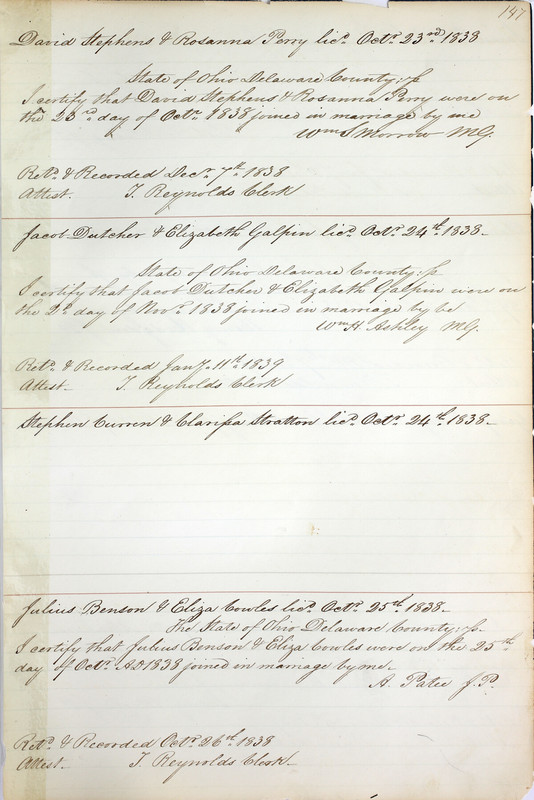 147
David Stephens & Rosanna Perry licd. Octr. 23rd 1838
State of Ohio Delaware County: ss
I certify that David Stephens & Rosanna Perry were on
the 23rd. day of Octr. 1838 joined in marriage by me
Wm S Morrow MG.
Retd. & Recorded Decr. 7th 1838
Attest. T. Reynolds Clerk
Jacob Dutcher & Elizabeth Galpin licd. Octr. 24th 1838.
State of Ohio Delaware County: ss
I certify that Jacob Dutcher & Elizabeth Galpin were on
the 2d. day of Novr. 1838 joined in marriage by be
Wm H. Ashley MG.
Retd. & Recorded Jany. 11th 1839
Attest. T. Reynolds Clerk
Stephen Curren & Clarissa Stratton licd. Octr. 24th 1838.
Julius Benson & Eliza Cowles licd. Octr. 25th 1838.
The State of Ohio Delaware County: ss.
I certify that Julius Benson & Eliza Cowles were on the 25th
day of Octr. AD 1838 joined in marriage by me.
A. Patee J.P.
Retd. & Recorded Octr. 26th 1838
Attest. T. Reynolds Clerk